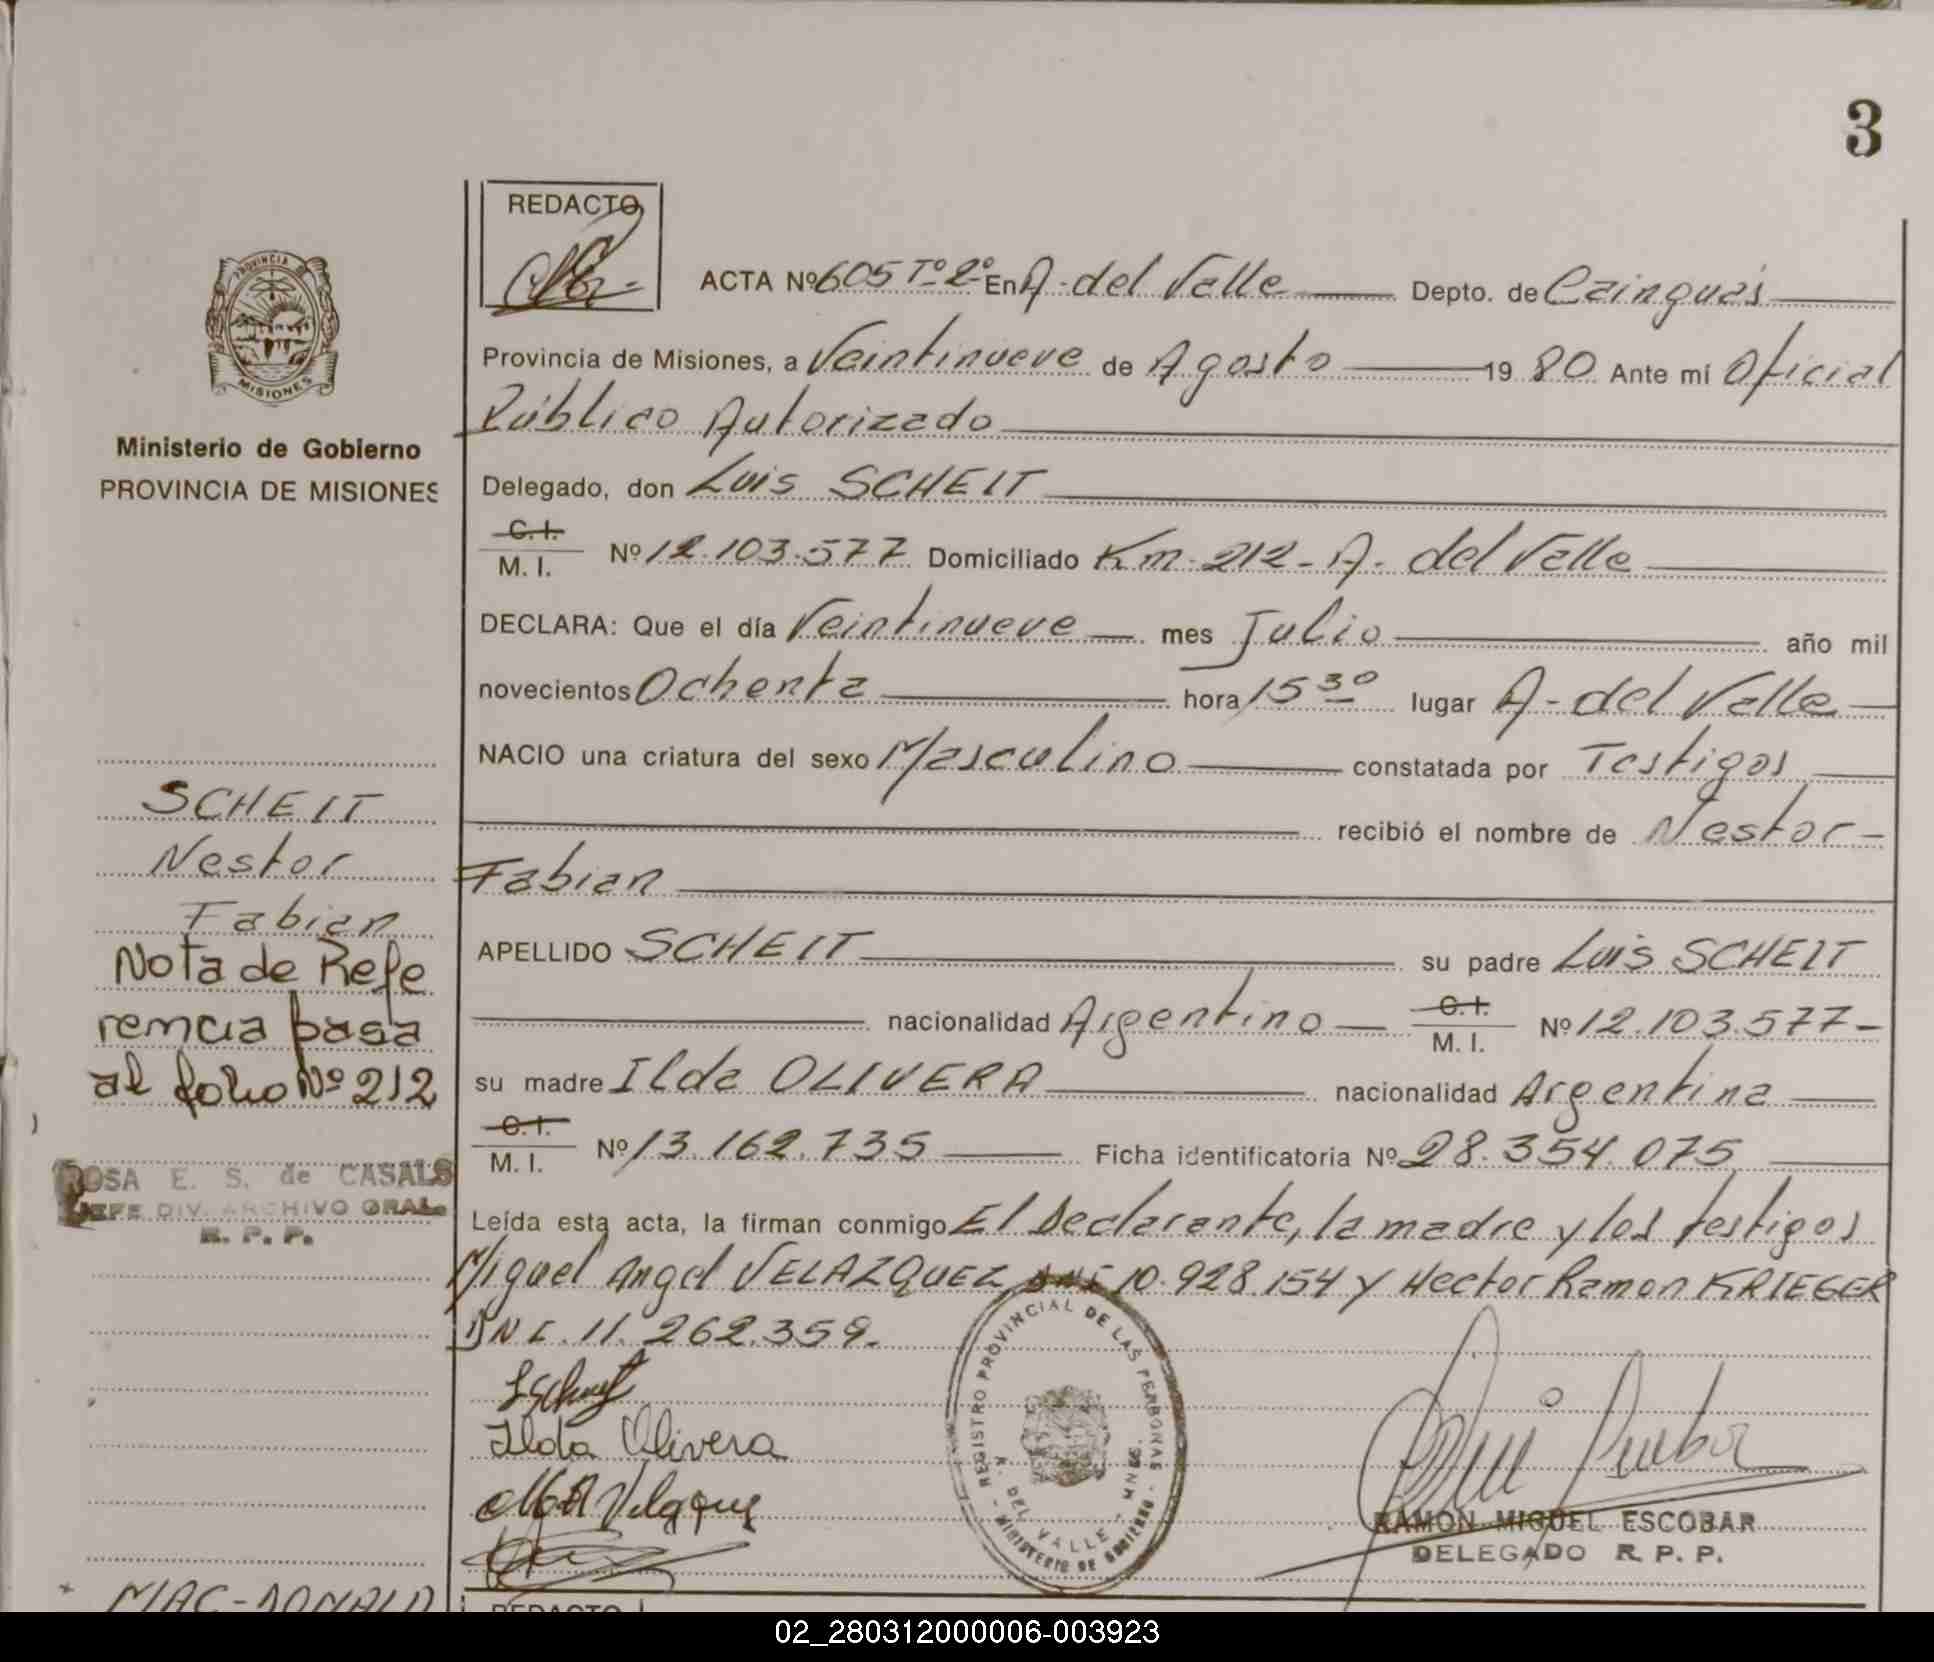 3
REDACTO
ACTA Nº 605 Tº 2º En A. del Valle Depto. de Cainguás
Provincia de Misiones, a Veintinueve de Agosto 19 80 Ante mí Oficial
Público Autorizado
Delegado, don Luis SCHEIT
C.I.
M. I. Nº 12.103.577 Domiciliado Km. 212 - A. del Valle
DECLARA: Que el día Veintinueve mes Julio año mil
novecientos Ochenta hora 15 30 lugar A - del Valle
NACIO una criatura del sexo Masculino constatada por Testigos
recibió el nombre de Nestor -
Fabian
APELLIDO SCHEIT su padre Luis SCHEIT
nacionalidad Argentino C.I. M. I. Nº 12.103.577 -
su madre Ilda OLIVERA nacionalidad Argentina
C.I.
M. I. Nº 13.162.735 Ficha identificatoria Nº 28.354.075
Leída esta acta, la firman conmigo El Declarante, la madre y los testigos
Miguel Angel VELAZQUEZ DNI 10.928.154 y Hector Ramon KRIEGER
DNI. 11.262.359.-
Ilda Olivera
REGISTRO PROVINCIAL DE LAS PERSONAS
A. DEL VALLE - MNES.
- MINISTERIO DE GOBIERNO -
RAMON MIGUEL ESCOBAR
DELEGADO R. P. P.
PROVINCIA DE
MISIONES
Ministerio de Gobierno
PROVINCIA DE MISIONES
SCHEIT
Nestor
Fabian
Nota de Refe
rencia pasa
al folio Nº 212
ROSA E. S. de CASALS
JEFE DIV. ARCHIVO GRAL.
R. P. P.
MAC-DONALD
REDACTO
02_280312000006-003923